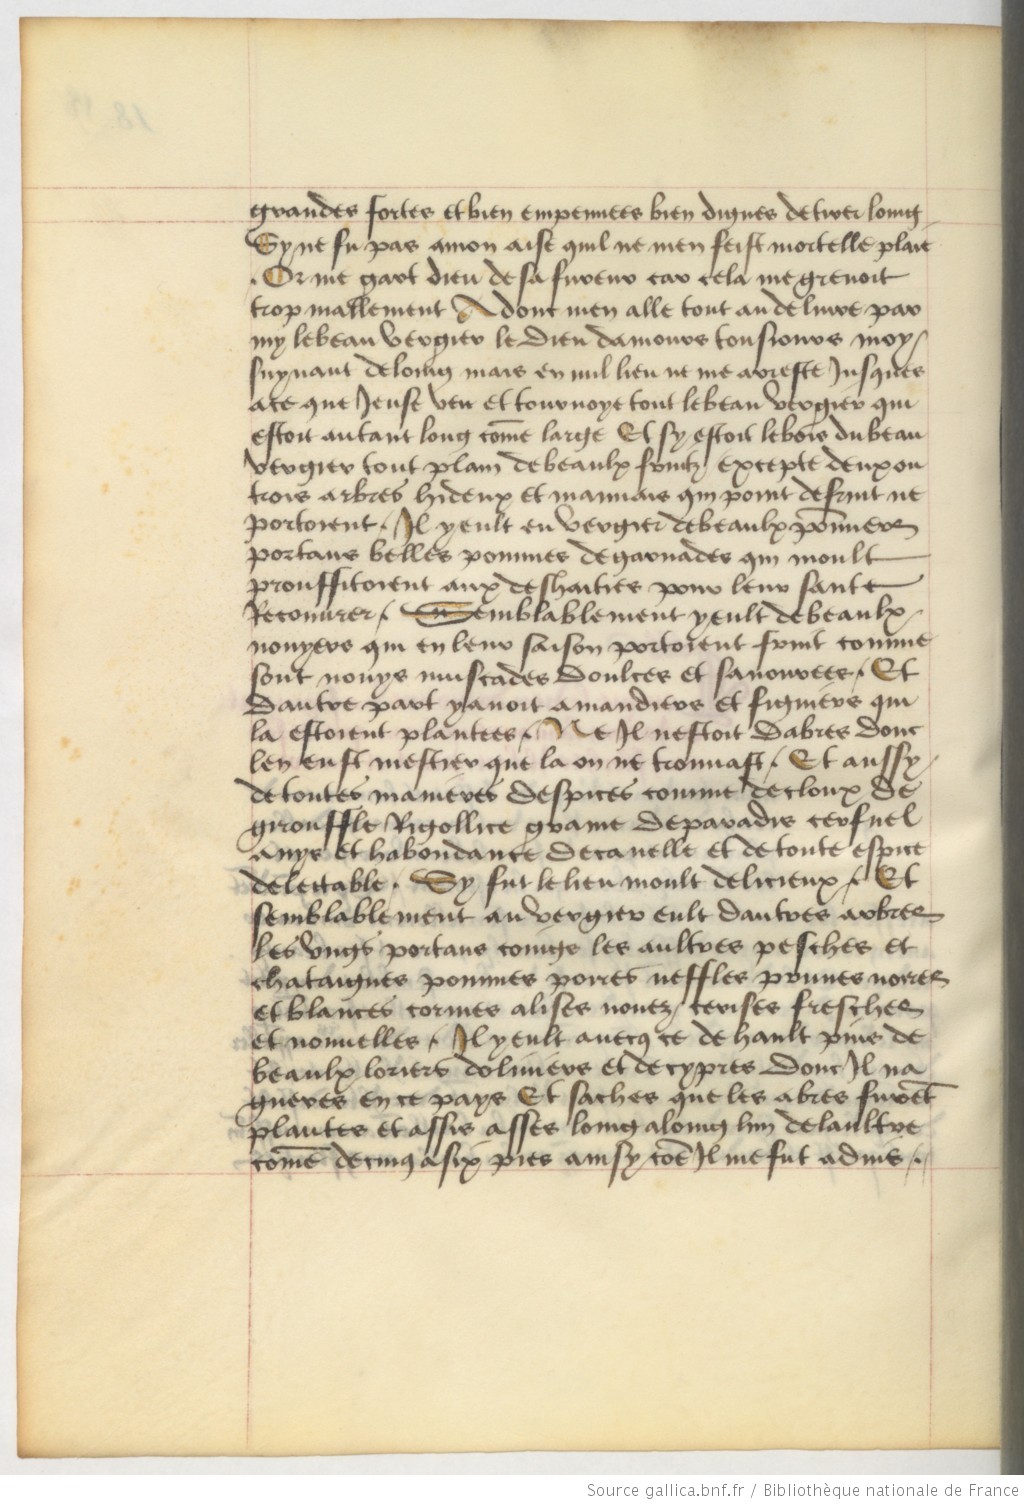 grandes fortes et bien empennees bien dignes de tirer loing
Sy ne fu pas a mon aise quil ne men feist mortelle plaie
. Or me gart dieu de sa fureur car cela me grevoit
trop mallement Adonc men alle tout au delivre par
my le beau vergier le dieu damours tousiours moy /
suyvant de loing mais en nul lieu ne me arreste Jusques
a ce que Jeuse veu et tournoye tout le beau vergier qui
estoit autant long come large Et sy estoit le bois du beau
vergier tout plain de beaulx fruitz excepte deux ou
trois arbres hideux et mauvais qui point de fruit ne
portoient . Il y eult en vergier de beaulx pomiers
portans belles pommes de garnades qui moult
prouffitoient aux deshaities pour leur sante
Recouvrer / . Semblablement y eult de beaulx /
nouyers qui en leur saison portoient fruit comme
sont nouys muscades doulces et savourees / . Et
dautre part y avoit amandiers et figuiers qui
la estoient plantees / . Ne Il nestoit dabres donc
len eust mestier que la on ne trouvast / . Et aussy /
de toutes manieres despices comme de cloux de
girouffle Rigollice graine de paradis cerfuel
anys et habondance de canelle et de toute espice
delectable . Sy fut le lieu moult delicieux / . Et
semblablement au vergier eult dautres arbres
les ungs portans coings les aultres pesches et
chataignes pommes poires neffles prunes noires
et blances cormes alises nouez / cerises fresches
et nouvelles / . Il y eult avecq ce de hault pins de
beaulx loriers doliviers et de cypres donc Il na
gueres en ce pays Et saches que les abres furet
plantes et assis asses loing a loing lun de laultre
come de cinq a six pies ainsy coe Il me fut advis / .
Source gallica.bnf.fr / Bibliothèque nationale de France